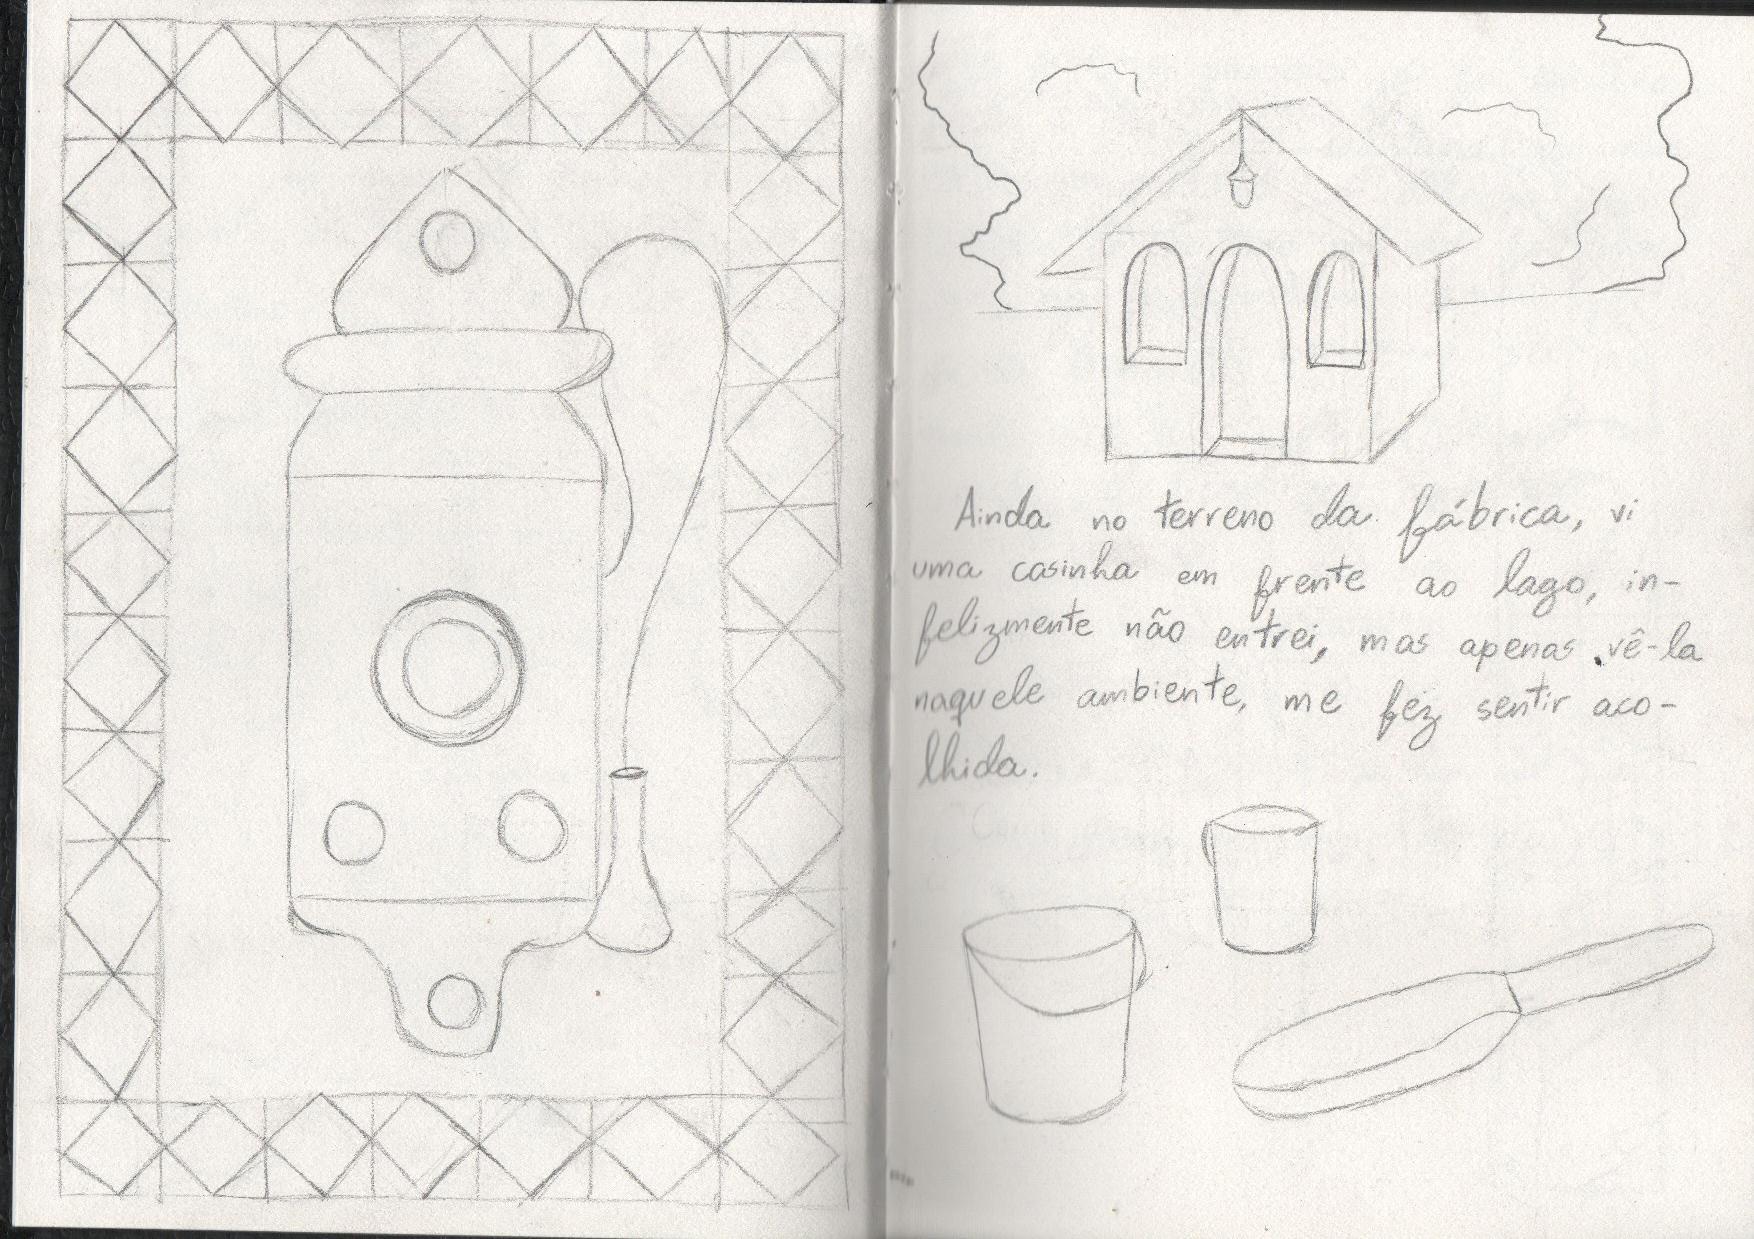 Ainda no terreno da fábrica, vi
uma casinha em frente ao lago, in-
felizmente não entrei, mas apenas vê-la
naquele ambiente, me fez sentir aco-
lhida.